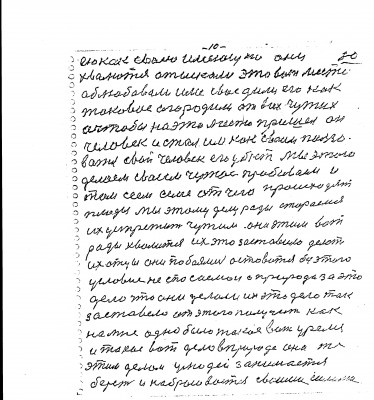 -10-
20
ею как своею именную они
хвалятся отыскали это вот место
облюбовали
таковое огородили от всех чужих
а чтобы на это место пришел он
человек и стал им как своим
свой человек его убьют мы этого
делаем своем чужое пробиваем и
том сеем семя от чего происходят
плоды мы этому делу рады стараемся
их чужим они этим вот
рады хвалятся их это заставило делают
их отцы они побоялись остаться без этого
условия не спасаемое в природе за это
дело что они делали их это дело так
заставило от этого получит как
на мне одно было такое вот
и такое вот дело в природе она же
этим делом у людей занимается
берет и набрасывается своими силами